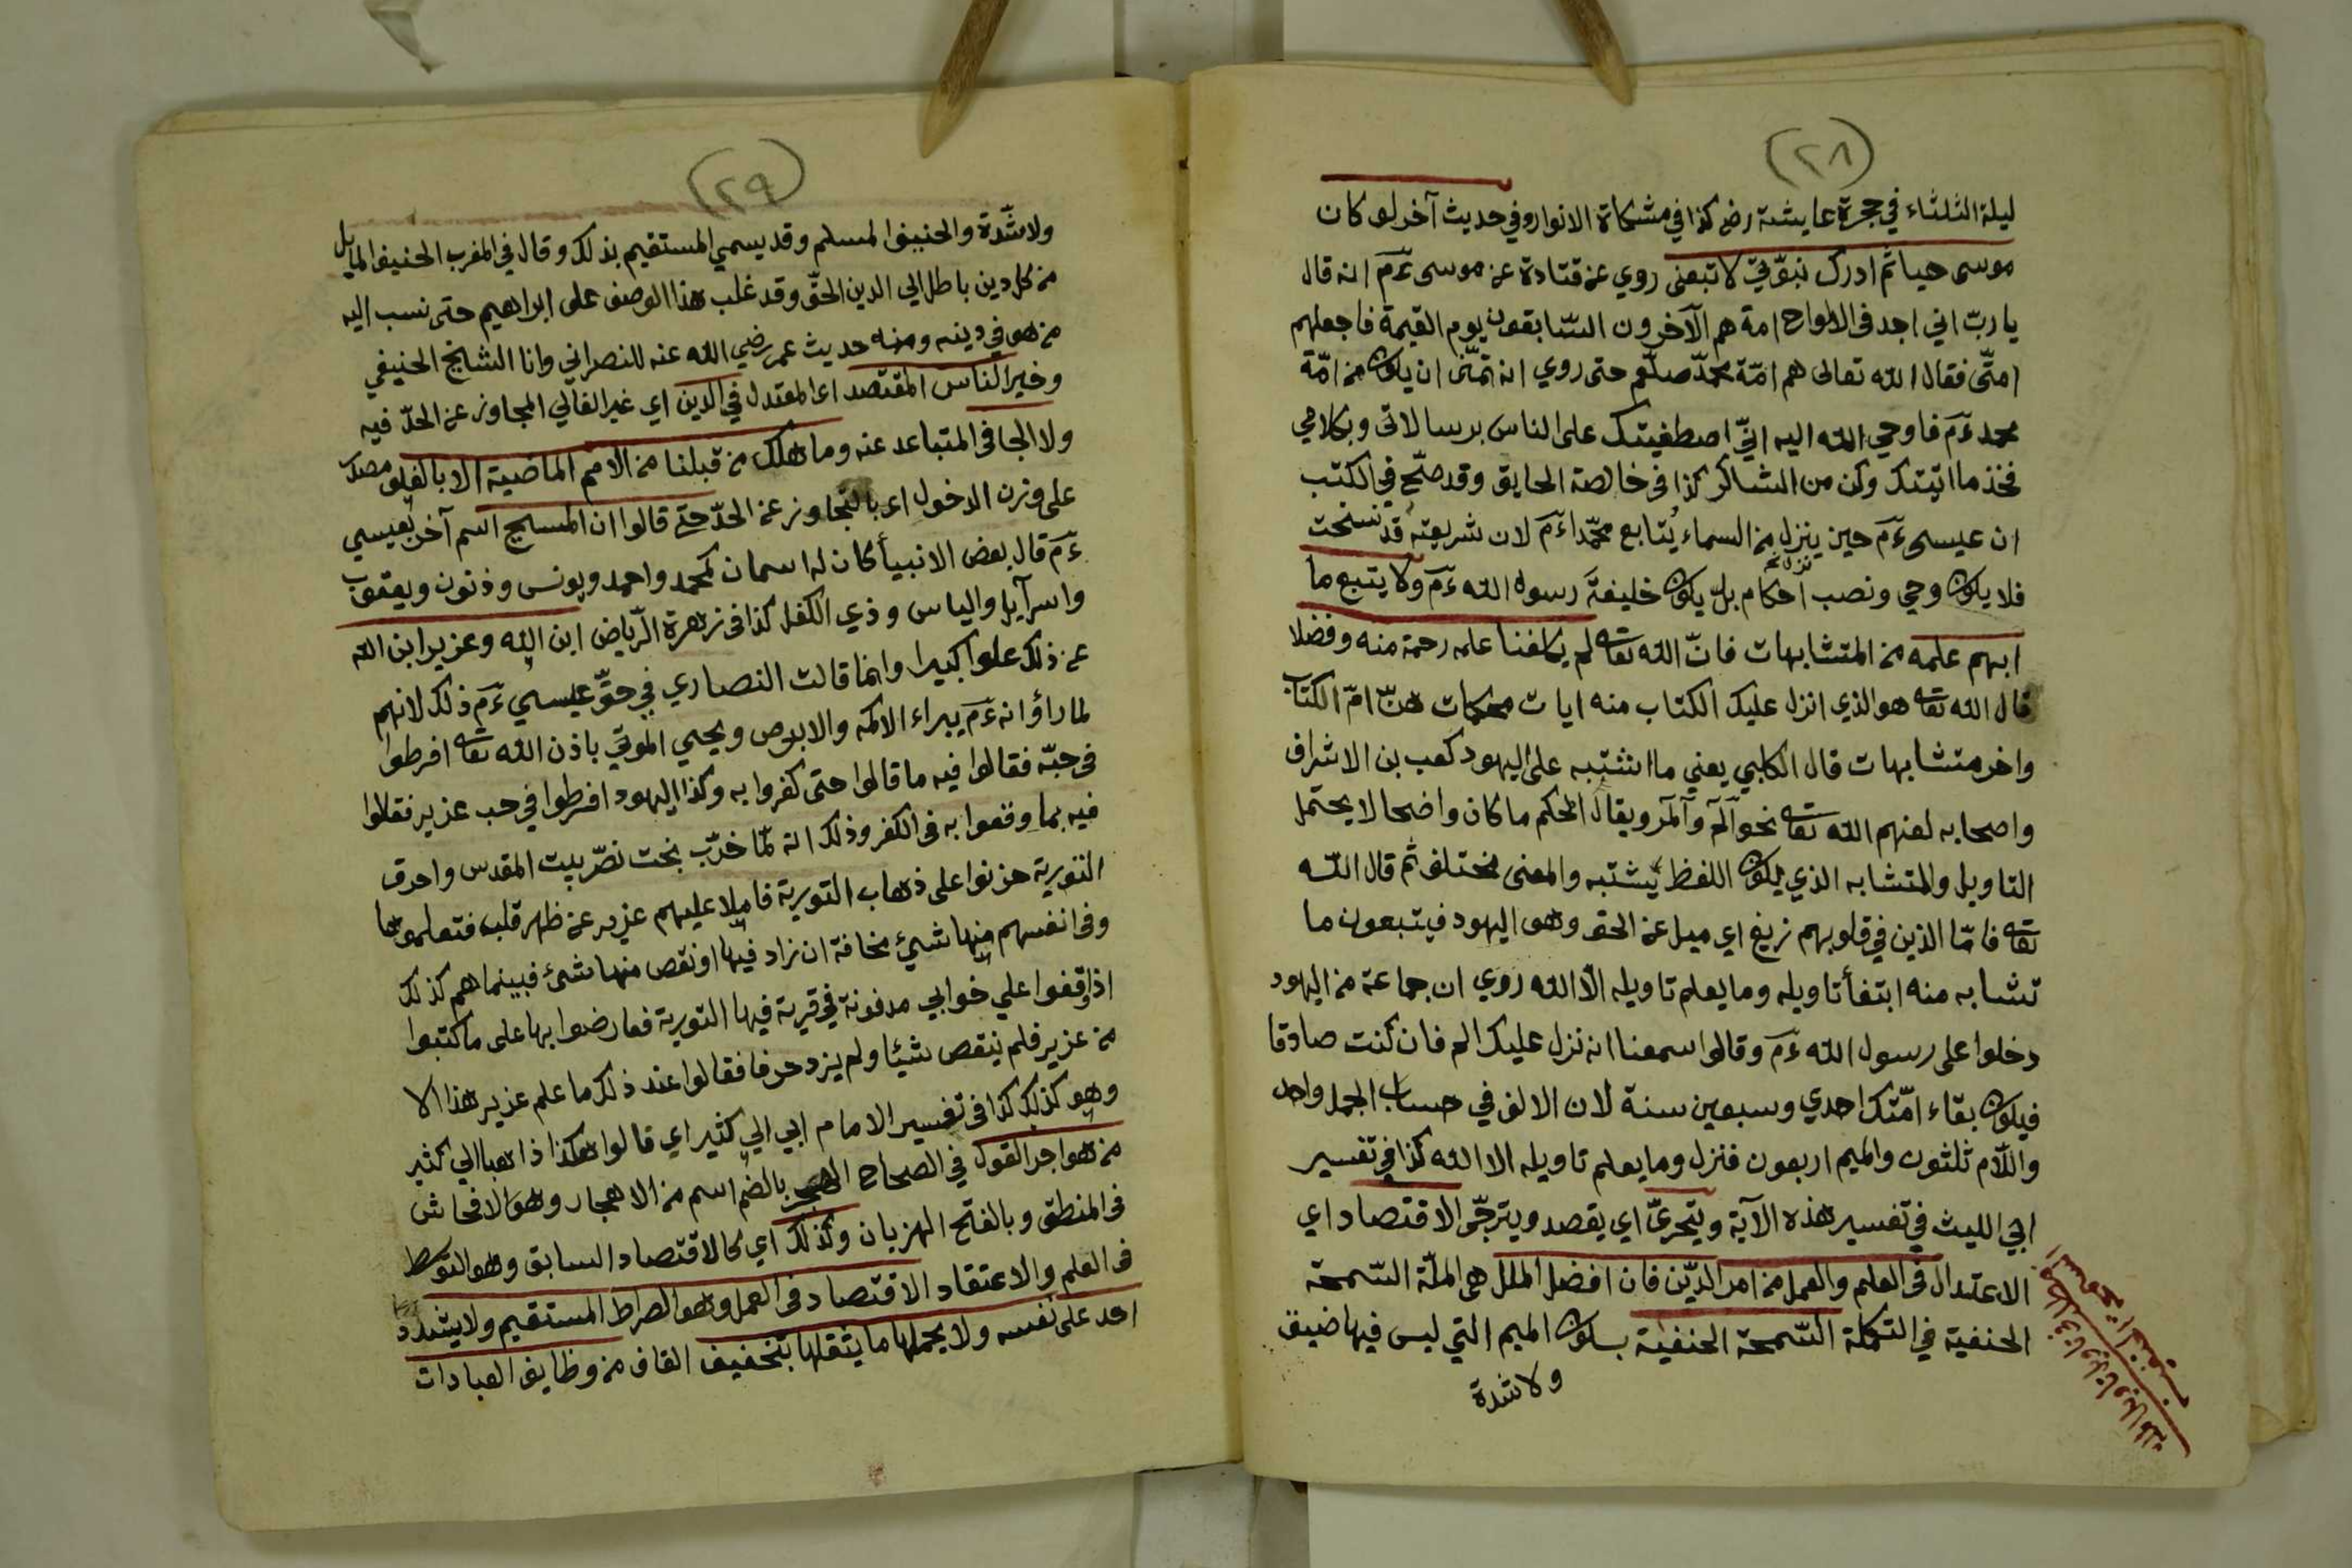 (٢٨)
ليلة الثلثاء في حجرة عايشة رضـ كذا في مشكاة الانوار وفي حديث آخر لو كان
موسى حيا ثم ادرك نبوّتي لا تبعنى روي عن قتادة عن موسى ءَمَ انه قال
يا ربّ اني اجد فى الالواح امة هم الآخرون السّابقون يوم القيمة فاجعلهم
امتّى فقال الله تعالى هم امّة محمّد صلّعم حتى روي انه تمنّى ان يكون من امّة
محمد ءَمَ فاوحي الله اليه انّي اصطفيتك على الناس برسالاتى وبكلامي
فخذ ما اتيتك وكن من الشاكر كذا فى خالصة الحقايق وقد صحّ في الكتب
ان عيسى ءَمَ حين ينزل من السماء يُتابع محمّدا ءَمَ لان شريعته قد نسخت
فلا يكون وحي ونصب احكام بل يكون خليفةَ رسول الله ءَمَ ولا يتبع ما
ابهم علمه من المتشابهات فانّ الله تعه لم يكلفنا علمه رحمة منه وفضلا
قال الله تعه هو الذي انزل عليك الكتاب منه ايات محكمات هنّ امّ الكتاب
واخر متشابهات قال الكلبي يعني ما اشتبه على اليهود كعب بن الاشراف
واصحابه لعنهم الله تعه نحو آلم وآلمر ويقال المحكم ما كان واضحا لا يحتمل
التاويل والمتشابه الذي يكون اللفظ يشتبه والمعنى مختلف ثم قال اللّه
تعه فامّا الذين في قلوبهم زيغ اي ميل عن الحق وهو اليهود فيتبعون ما
تشابه منه ابتغأ تاويله وما يعلم تاويله الاّ الله روي ان جماعة من اليهود
دخلوا على رسول الله ءَمَ وقالوا سمعنا انه نزل عليك الم فان كنت صادقا
فيكون بقاء امّتك احدي وسبعين سنة لان الالف في حساب الجمل واحد
واللّام ثلثون والميم اربعون فنزل وما يعلم تاويله الا الله كذا في تفسير
ابي الليث في تفسير هذه الآية ويتحريّ اي يقصد ويترجّى الاقتصاد اي
الاعتدال فى العلم والعمل من امر الدّين فان افضل الملل هى الملّة السّمحة
الحنفية في التكملة السّمحة الحنفية بسكون الميم التي ليس فيها ضيق
ولا شدة
(٢٩)
ولا شّدة والحنيف المسلم وقد يسمي المستقيم بذلك وقال في المغرب الحنيف المايل
من كل دين باطل الي الدين الحقّ وقد غلب هذا الوصف على ابراهيم حتى نسب اليه
من هو في دينه ومنه حديث عمر رضي الله عنه للنصراني وانا الشايخ الحنيفي
وخير الناس المقتصد اى المعتدل في الدين اي غير الغالي المجاوز عن الحدّ فيه
ولا الجافى المتباعد عنه وما هلك من قبلنا من الامم الماضية الا بالغلو مصدر
على وزن الدخول اى بالتجاوز عن الحدّ حتى قالوا ان المسيح اسم آخر لعيسي
ءَمَ قال بعض الانبيأ كان له اسمان كمحمد واحمد ويونس وذنون ويعقوب
واسرآيل والياس وذي الكفل كذا فى زهرة الرّياض ابن الله وعزير ابن الله
عن ذلك علوا كبيرا وانما قالت النصاري في حقّ عيسي ءَمَ ذلك لانهم
لما رأوْا انه ءَمَ يبراء الاكمه والابرص ويحيي الموتي باذن الله تعه افرطوا
فى حبّه فقالوا فيه ما قالوا حتى كفروا به وكذا اليهود افرطوا في حب عزير فقالوا
فيه بما وقعوا به فى الكفر وذلك انه لمّا خرّب بخت نصّر بيت المقدس واحرق
التورية حزنوا على ذهاب التورية فاملا عليهم عزير عن ظهر قلب فتعلموها
وفى انفسهم منها شيئ مخافة ان زاد فيها او نقص منها شئ فبينما هم كذلك
اذ وقفوا علي خوابي مدفونة في قرية فيها التورية فعارضوا بها على ما كتبوا
من عزير فلم ينقص شيئا ولم يزد حرفا فقالوا عند ذلك ما علم عزير هذا الا
وهو كذلك كذا فى تفسير الامام ابي الي كثير اي قالوا هكذا ذاهبا الي كثير
من هواجر القول في الصحاح الهجر بالضم اسم من الاهجار وهو الافحاش
فى المنطق وبالفتح الهزيان وكذلك اي كالاقتصاد السابق وهو التوسط
فى العلم والاعتقاد الاقتصاد فى العمل وهو الصراط المستقيم ولا يشدد
احد على نفسه ولا يحملها ما يثقلها بتخفيف القاف من وظايف العبادات